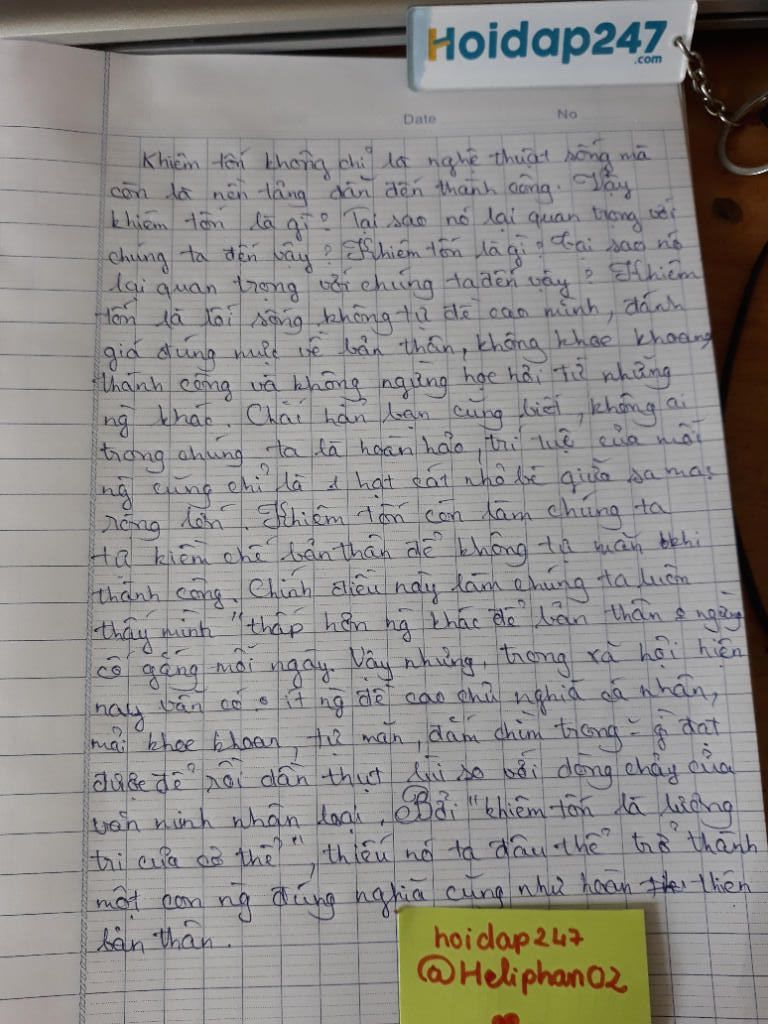 Hoidap247
.com
Date No
Khiêm tốn không chỉ là nghệ thuật sống mà
còn là nền tảng dẫn đến thành công. Vậy
khiêm tốn là gì? Tại sao nó lại quan trọng với
chúng ta đến vậy? Khiêm tốn là gì? Tại sao nó
lại quan trọng với chúng ta đến vậy? Khiêm
tốn là lối sống không tự đề cao mình, đánh
giá đúng mực về bản thân, không khoe khoang
thành công và không ngừng học hỏi từ những
ng khác. Chắc hẳn bạn cũng biết, không ai
trong chúng ta là hoàn hảo, trí tuệ của mỗi
ng cũng chỉ là 1 hạt cát nhỏ bé giữa sa mạc
rộng lớn. Khiêm tốn còn làm chúng ta
tự kiềm chế bản thân để không tự mãn khi
thành công. Chính điều này làm chúng ta luôn
thấy mình "thấp hơn ng khác để bản thân ngừng
cố gắng mỗi ngày. Vậy nhưng, trong xã hội hiện
nay vẫn có ít ng đề cao chủ nghĩa cá nhân,
mải khoe khoan, tự mãn, đắm chìm trong = gì đạt
được để rồi dần thụt lùi so với dòng chảy của
văn minh nhân loại. Bởi "khiêm tốn là lương
tri của cơ thể", thiếu nó ta đâu thể trở thành
một con ng đúng nghĩa cũng như hoàn thiện
bản thân.
hoidap247
@Heliphan02